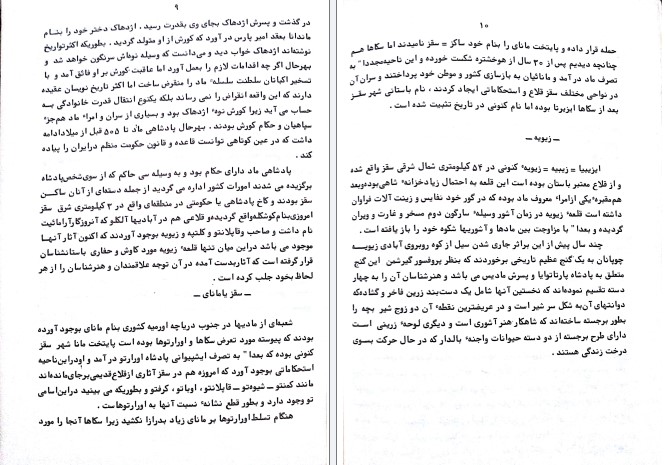 ۹
در گذشت و پسرش اژدهاک بجای وی بقدرت رسید . اژدهاک دختر خود را بنام
ماندانا بعقد امیر پارس در آورد که کورش از او متولد گردید . بطوریکه اکثرتواریخ
نوشته‌اند اژدهاک خواب دید و می‌دانست که وسیله نوه‌اش سرنگون خواهد شد و
بهرحال اگر چه اقدامات لازم را بعمل آورد اما عاقبت کورش بر او فائق آمد و با
تسخیر اکباتان سلطنت سلسله ٔ ماد را منقرض ساخت اما اکثر تاریخ نویسان عقیده
دارند که این واقعه انقراض را نمی رساند بلکه یکنوع انتقال قدرت خانوادگی بـه
حساب می آید زیرا کورش نوه ٔ اژدهاک بود و بسیاری از سران و امراء ماد همجزٔ
سپاهیان و حکام کورش بودند . بهرحال پادشاهی ماد تا ۵۰۵ قبل از میلادادامه
داشت که در عین کوتاهی توانست قاعده و قانون حکومت منظم درایران را پیاده
کند .
پادشاهی ماد دارای حکام بود و به وسیله سی حاکم که از سوی‌شخص‌پادشاه
برگزیده می شدند امورات کشور اداره می گردید از جمله دسته‌ای از آنان ساکـن
سقز بودند و کاخ پادشاهی یا حکومتی در منطقه‌ای واقع در ۳ کیلومتری شرق سقز
امروزی‌بنام‌کوشکله‌واقع گردیده‌و قلاعی هم در آبادیها آلکلو که آنروزگارآراماثیت
نام داشت و صاحب وقاپلانتو و کلتپه و زیویه بوجود آوردند که اکنون آثار آنهـا
موجود می باشد دراین میان تنها قلعه ٔ زیویه مورد کاوش و حفاری باستانشناسان
قرار گرفته است که آثاربدست آمده در آن توجه علاقمندان و هنرشناسان را از هر
لحاظ بخود جلب کرده است .
ــ سقز یامانای ــ
شعبه‌ای از مادیها در جنوب دریاچه اورمیه کشوری بنام مانای بوجود آورده
بودند که پیوسته مورد تعرض سکاها و اورارتوها بوده است پایتخت مانا شهر سقز
کنونی بوده که بعدا " به تصرف ایشپیوانی پادشاه اورارتو در آمد و اودراین‌ناحیه
استحکاماتی بوجود آورد که امروزه هم در سقز آثاری ازقلاع‌قدیمی‌برجای‌مانده‌اند
مانند کمنتو ــ شیوه‌تو ــ قاپلانتو ، اوباتو ، کرفتو و بطوریکه می بینید دراین‌اسامی
تو وجود دارد و بطور قطع نشانه ٔ نسبت آنها به اورارتوهاست .
هنگام تسلط اورارتوها بر مانای زیاد بدرازا نکشید زیرا سکاها آنجا را مورد
۱۰
حمله قرار داده و پایتخت مانای را بنام خود ساکز = سقز نامیدند اما سکاها هم
چنانچه دیدیم پس از ۳۰ سال از هوخشتره شکست خورده و این ناحیه‌مجددا " به
تصرف ماد در آمد و مانائیان به بازسازی کشور و موطن خود پرداختند و سران آن
در نواحی مختلف سقز قلاع و استحکاماتی ایجاد کردند ، نام باستانی شهر سقـز
بعد از سکاها ایزیرتا بوده اما نام کنونی در تاریخ تثبیت شده است .
ــ زیویه ــ
ایزیبیا = زیبیه = زیویه ٔ کنونی در ۵۴ کیلومتری شمال شرقی سقز واقع شده
و از قلاع معتبر باستان بوده است این قلعه به احتمال زیادخزانه ٔ شاهی‌بوده‌وبعد
هم‌مقبره ٔ یکی ازامراء معروف ماد بوده که در گور خود نفایس و زینت آلات فراوان
داشته است قلعه ٔ زیویه در زمان آشور وسیله ٔ سارگون دوم مسخر و غارت و ویران
گردیده و بعدا " با مزاوجت بین مادها و آشوریها شکوه خود را باز یافته است .
چند سال پیش از این براثر جاری شدن سیل از کوه روبروی آبادی زیویـــه
چوپانان به یک گنج عظیم تاریخی برخوردند که بنظر پروفسور گیرشمن این گنج
متعلق به پادشاه پارتاتوایا و پسرش مادیس می باشد و هنرشناسان آن را به چهار
دسته تقسیم نموده‌اند که نخستین آنها شامل یک دست‌بند زرین فاخر و گشاده‌که
دوانتهای آن‌به شکل سر شیر است و در عریضترین نقطه ٔ آن دو زوج شیر بچه را
بطور برجسته ساخته‌اند که شاهکار هنر آشوری است و دیگری لوحه ٔ زرینی اسـت
دارای طرح برجسته از دو دسته حیوانات واجنه ٔ بالدار که در حال حرکت بسـوی
درخت زندگی هستند .